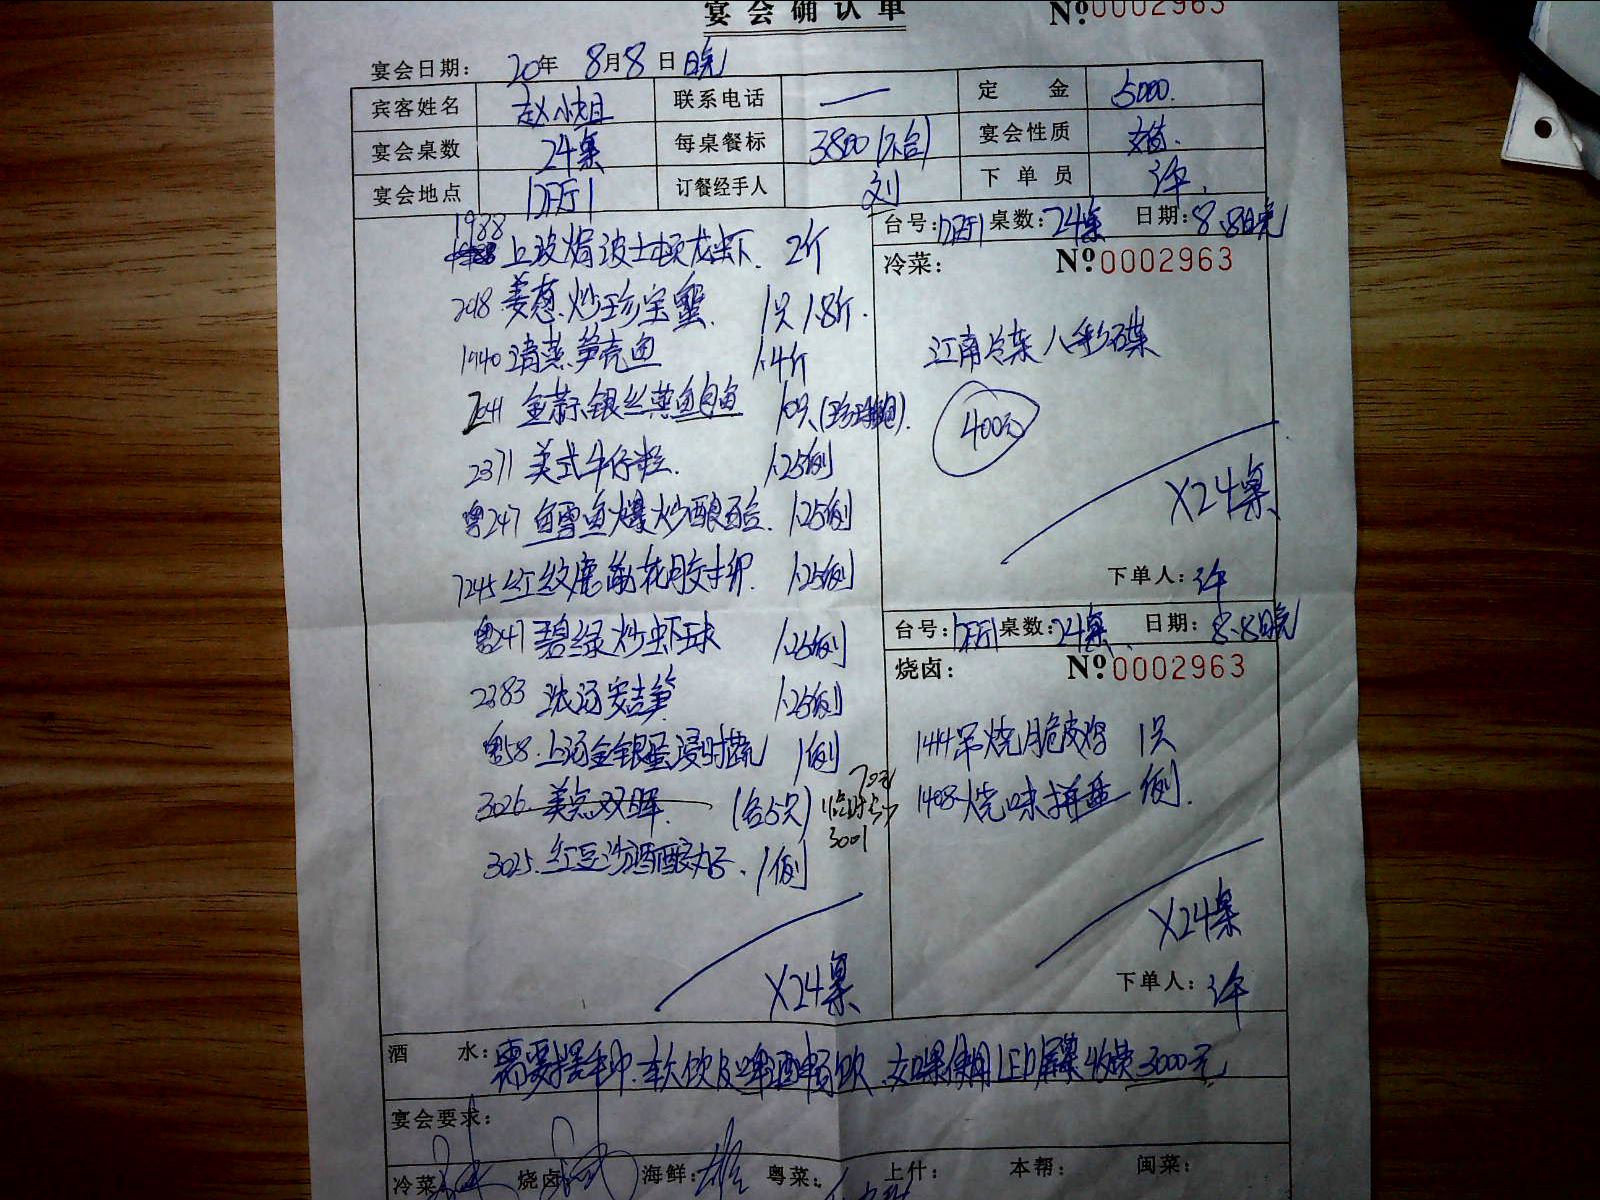 宴会确认单 Nº0002963
宴会日期: 20年 8月8日晚
宾客姓名 赵小姐 联系电话 — 定金 5000.
宴会桌数 24桌 每桌餐标 3800(不含) 宴会性质 婚.
宴会地点 订餐经手人 刘 下单员 许.
1988 上汤焗波士顿龙虾. 2斤
姜葱炒珍宝蟹. 1只 1.8斤.
1940 清蒸笋壳鱼 1.4斤
2041 金蒜银丝蒸鲍鱼 10只
2371 美式牛仔粒. 1.25例
粤247 鳕鱼爆炒 1.25例
1.25例
粤247 碧绿炒虾球 1.25例
2383 浓汤安吉笋 1.25例
粤58. 上汤金银蛋浸时蔬 1例
3026 美点双辉. (各5只)
3001
3025. 红豆沙酒酿丸子. 1例
X24桌
台号: 桌数: 24桌 日期: 8.8日晚
冷菜: Nº0002963
江南冷菜八彩碟
400元
X24桌
下单人: 许
台号: 桌数: 24桌 日期: 8.8日晚
烧卤: Nº0002963
1414 吊烧脆皮鸡 1只
1408 烧味拼盘 例.
X24桌
下单人: 许
酒水: 需要摆毛巾. 软饮及啤酒畅饮. 如果使用LED屏幕收费3000元
宴会要求:
冷菜 烧卤 海鲜: 粤菜: 上什: 本帮: 闽菜: